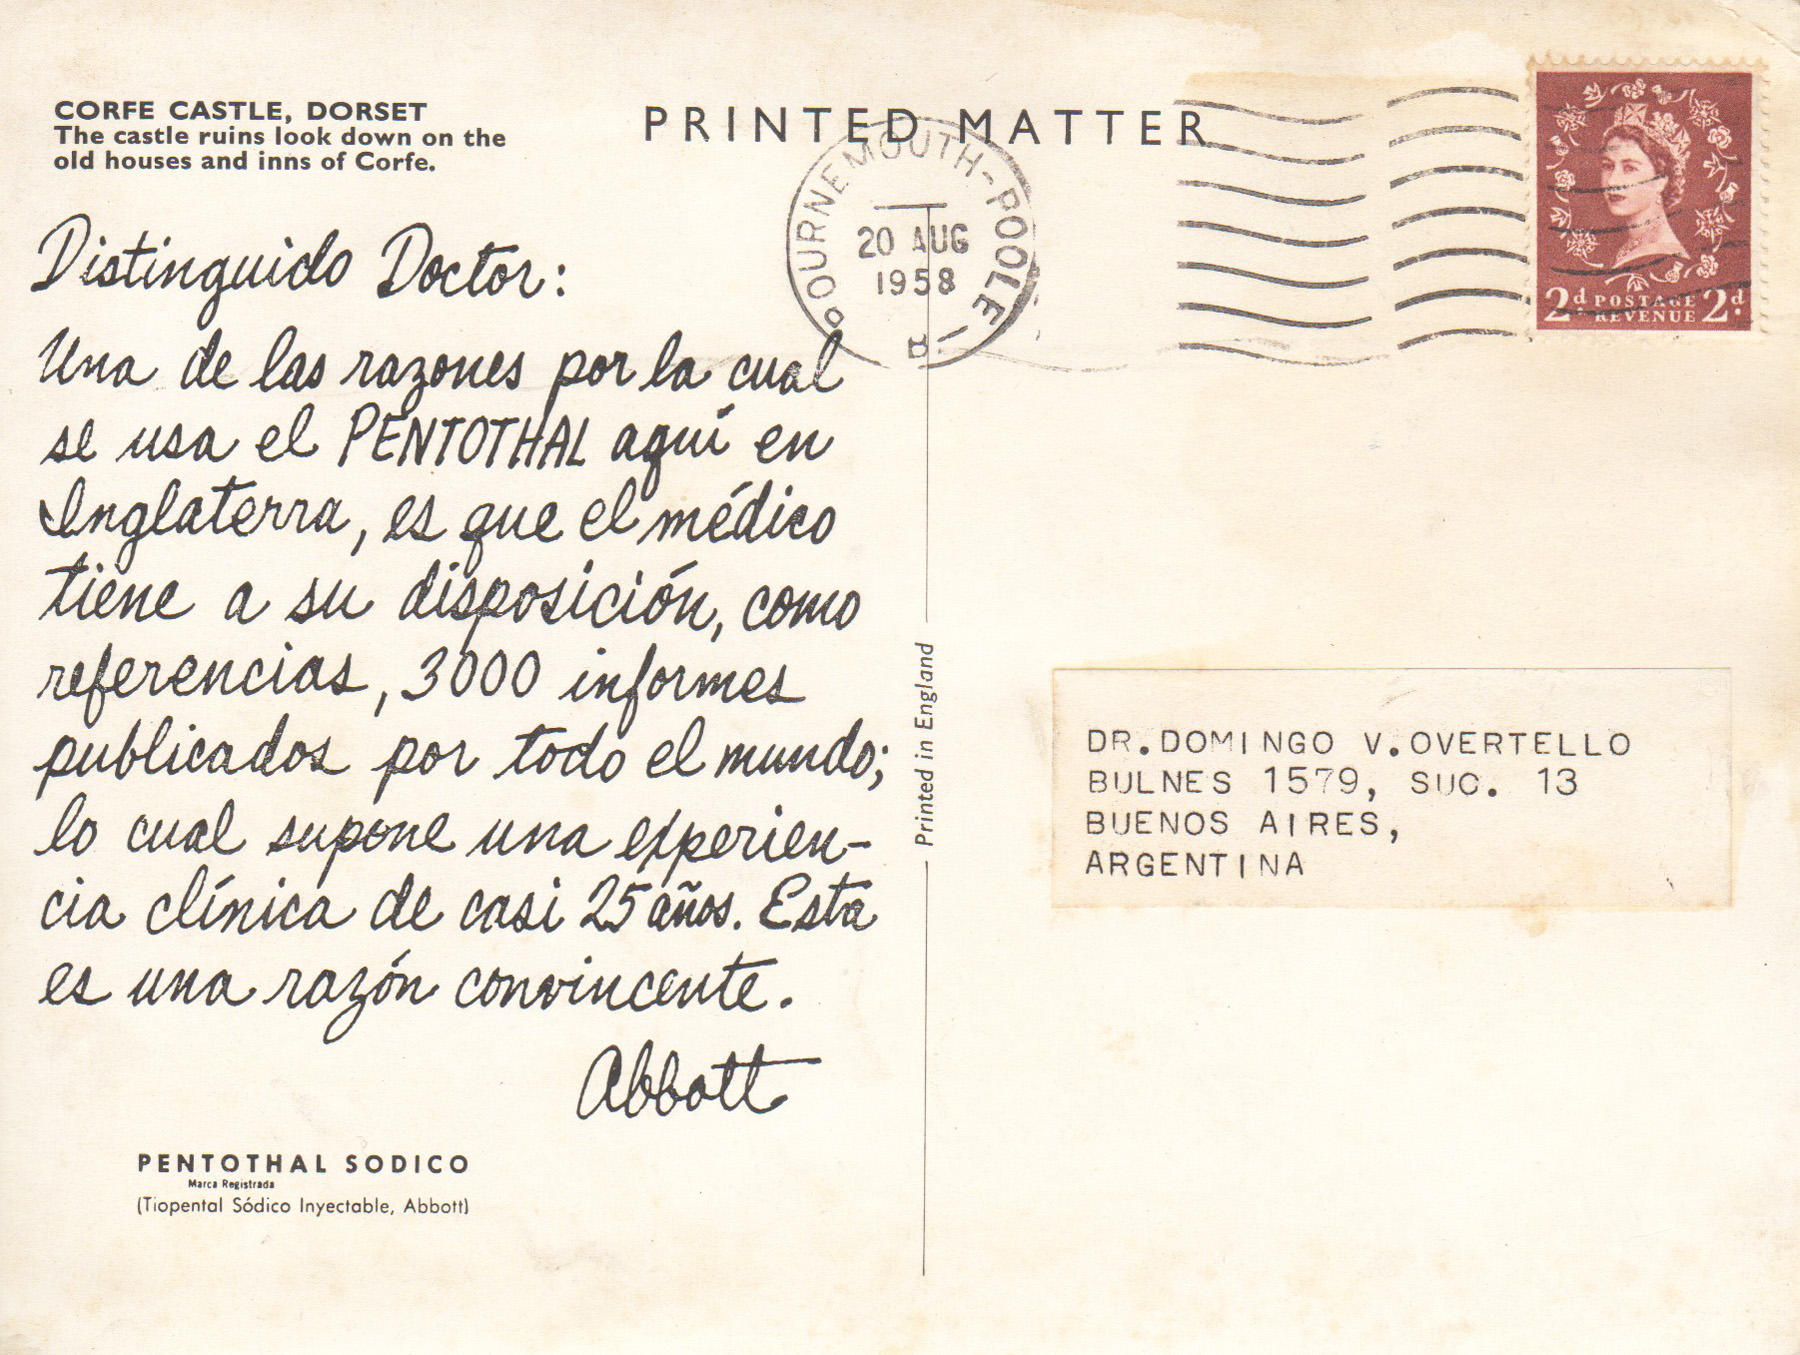 CORFE CASTLE, DORSET
The castle ruins look down on the
old houses and inns of Corfe.
PRINTED MATTER
BOURNEMOUTH-POOLE
20 AUG
1958
B
2d POSTAGE 2d
REVENUE
Distinguido Doctor:
Una de las razones por la cual
se usa el PENTOTHAL aquí en
Inglaterra, es que el médico
tiene a su disposición, como
referencias, 3000 informes
publicados por todo el mundo;
lo cual supone una experien-
cia clínica de casi 25 años. Esta
es una razón convincente.
Abbott
PENTOTHAL SODICO
Marca Registrada
(Tiopental Sódico Inyectable, Abbott)
Printed in England
DR.DOMINGO V.OVERTELLO
BULNES 1579, SUC. 13
BUENOS AIRES,
ARGENTINA